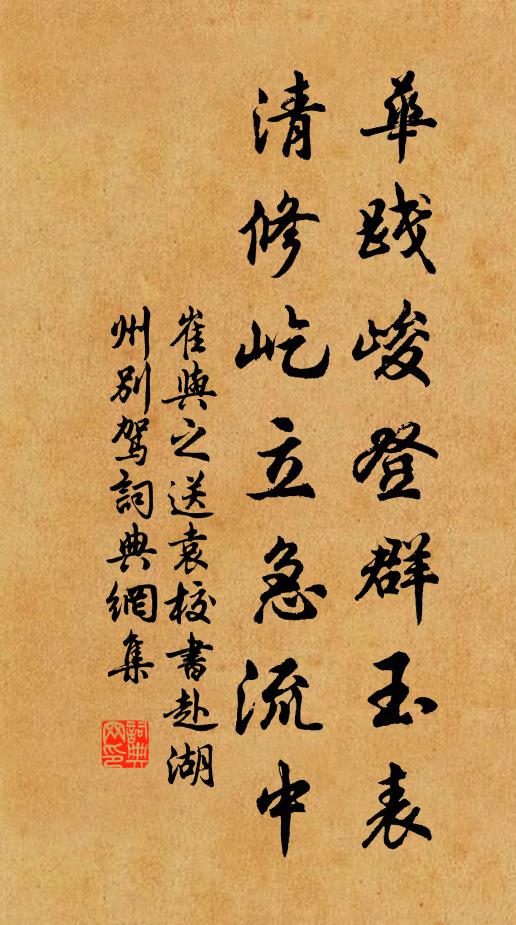 華踐峻登群玉表
清修屹立急流中
崔與之送袁校書赴湖
州別駕詞典網集
詞典
網印